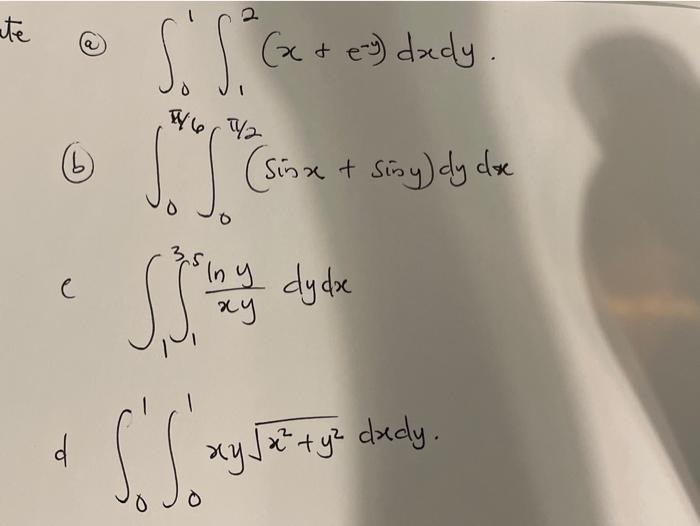 te (a) ∫₀¹ ∫₁² (x + e^-y) dxdy.
(b) ∫₀^π/6 ∫₀^π/2 (sin x + sin y) dy dx
c ∫₁³ ∫₁⁵ ln y / xy dydx
d ∫₀¹ ∫₀¹ xy√(x² + y²) dxdy.